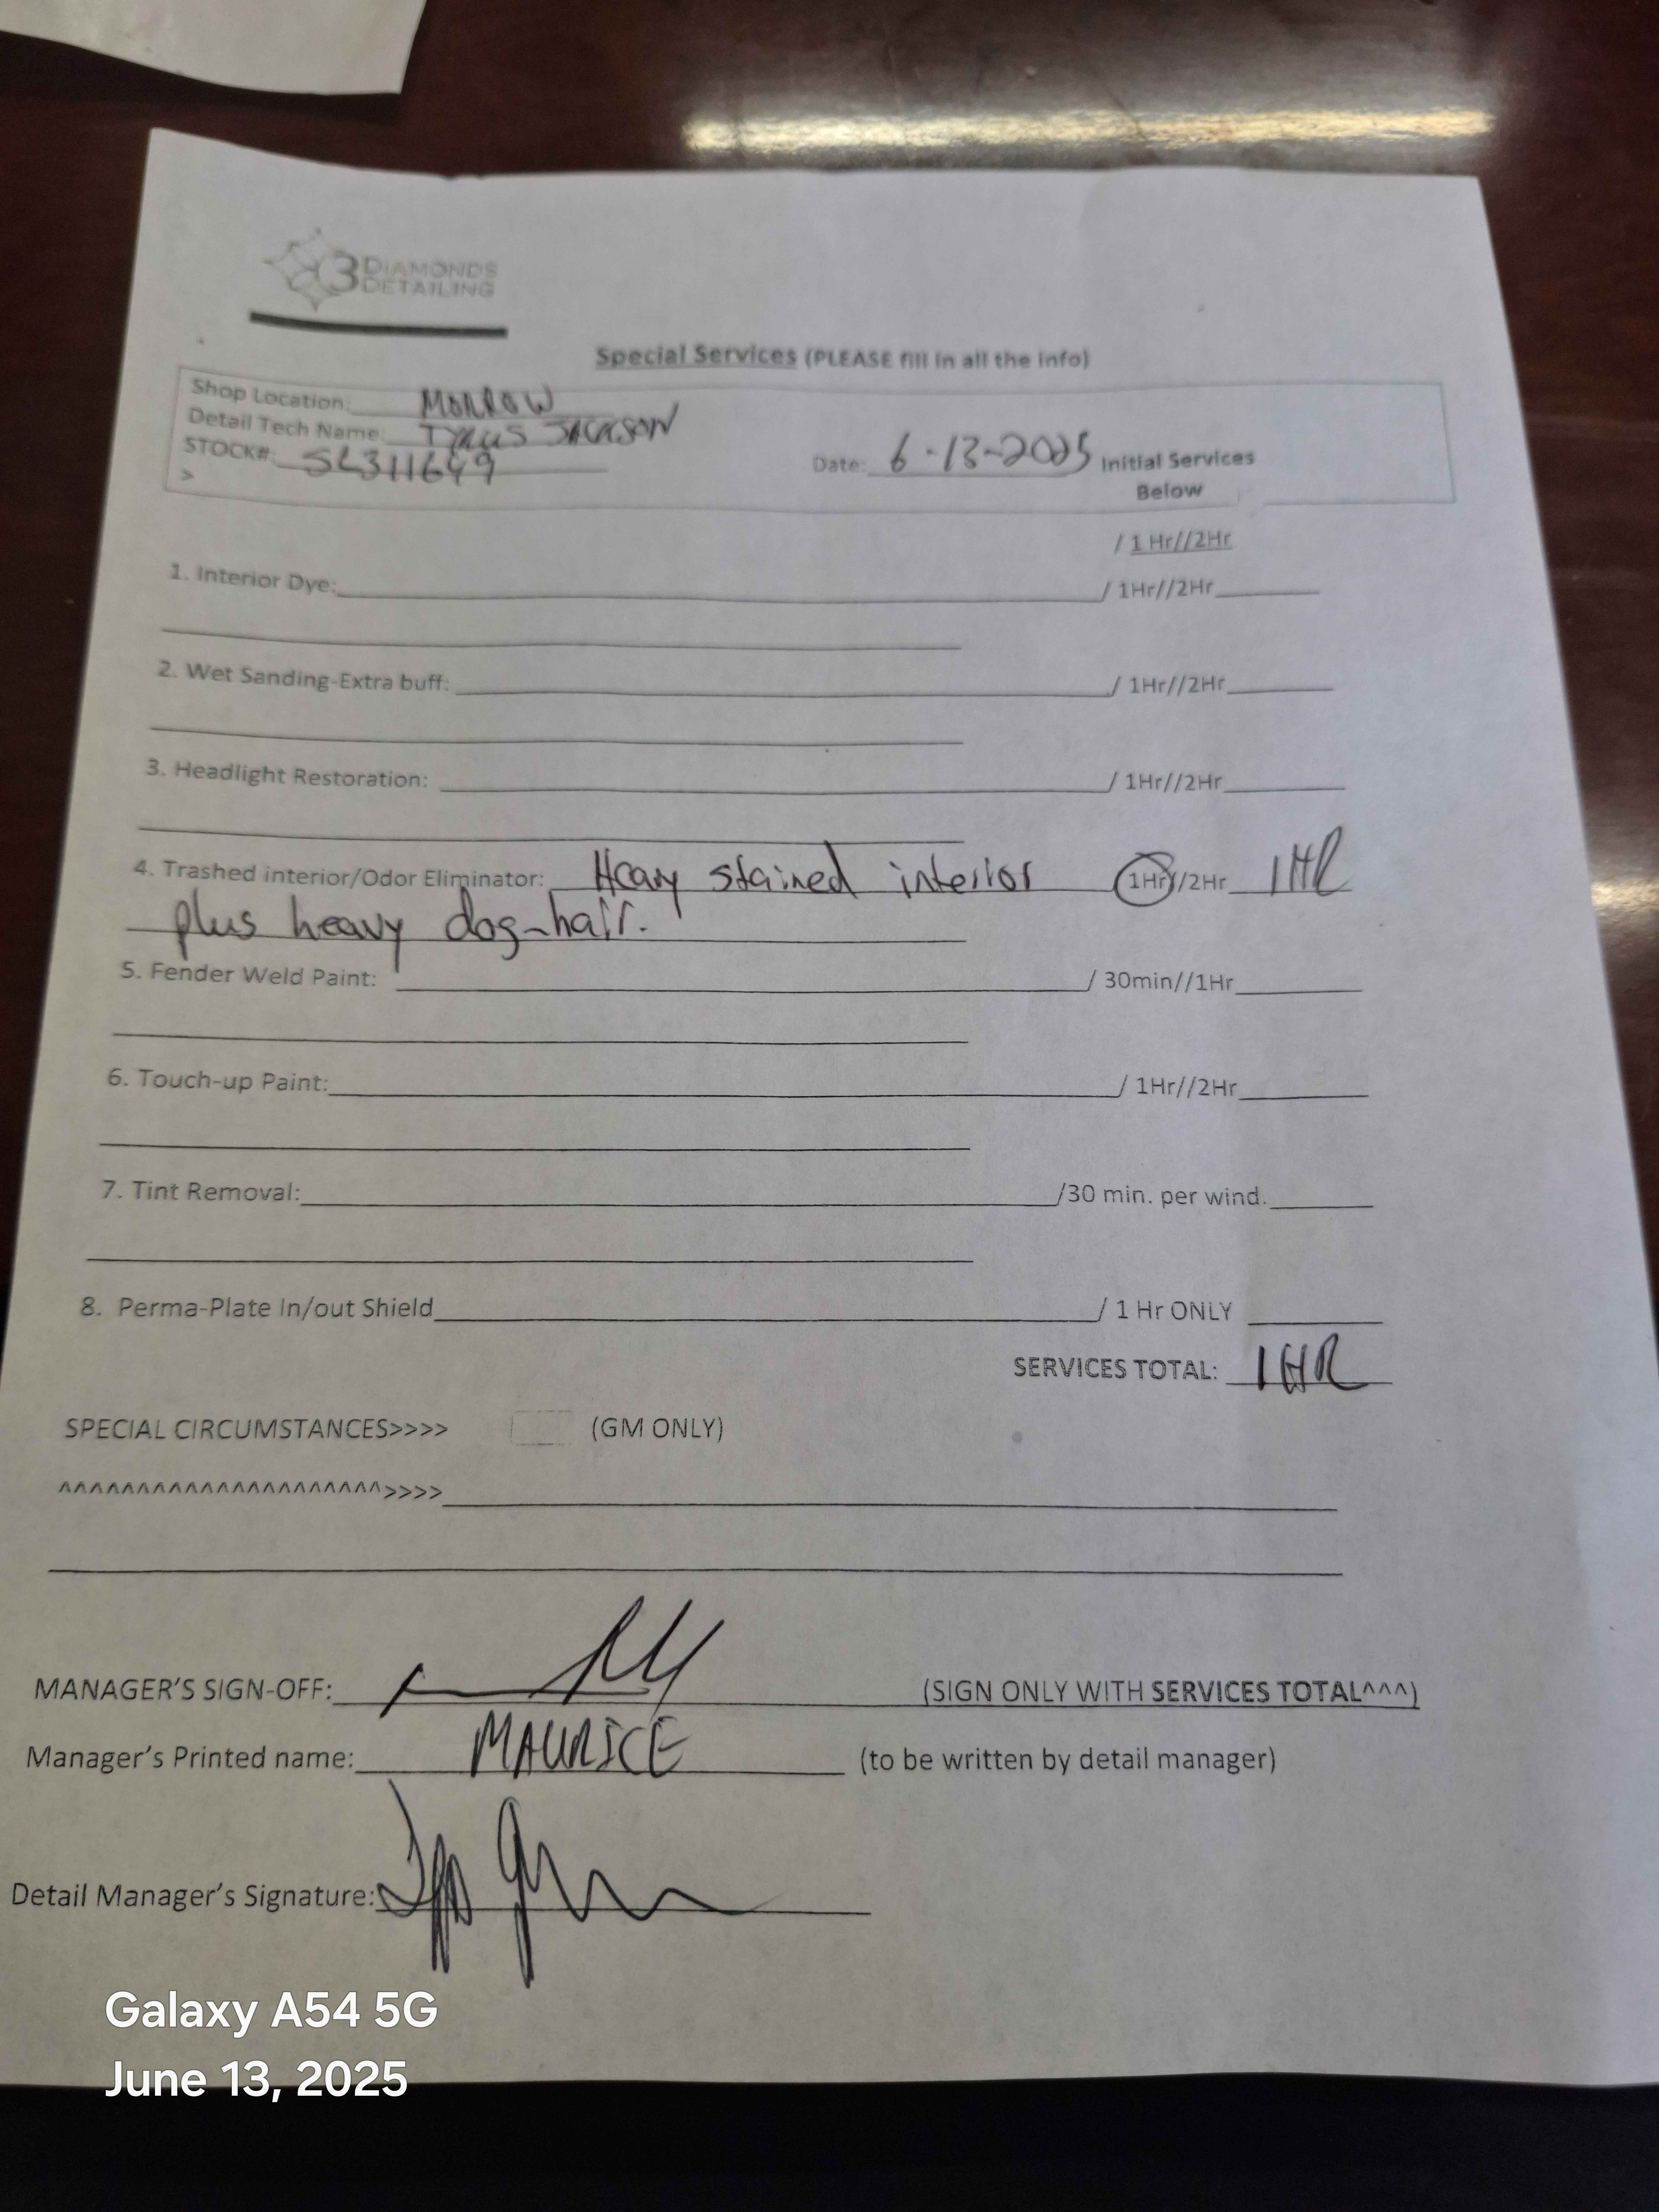 3 DIAMONDS
DETAILING
Special Services (PLEASE fill in all the info)
Shop Location: MORROW
Detail Tech Name: TYRUS JACKSON
STOCK#: SL311649
Date: 6-13-2025 Initial Services
Below
>
/ 1 Hr//2Hr
1. Interior Dye: / 1Hr//2Hr
2. Wet Sanding-Extra buff: / 1Hr//2Hr
3. Headlight Restoration: / 1Hr//2Hr
4. Trashed interior/Odor Eliminator: Heavy stained interior 1Hr//2Hr 1HR
plus heavy dog-hair.
5. Fender Weld Paint: / 30min//1Hr
6. Touch-up Paint: / 1Hr//2Hr
7. Tint Removal: /30 min. per wind.
8. Perma-Plate In/out Shield / 1 Hr ONLY
SERVICES TOTAL: 1HR
SPECIAL CIRCUMSTANCES>>>> (GM ONLY)
^^^^^^^^^^^^^^^^^^^^^>>>>
MANAGER'S SIGN-OFF: (SIGN ONLY WITH SERVICES TOTAL^^^)
Manager's Printed name: MAURICE (to be written by detail manager)
Detail Manager's Signature:
Galaxy A54 5G
June 13, 2025